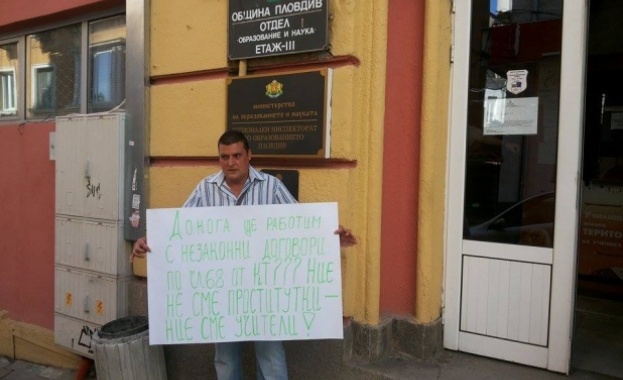 ОБЩИНА ПЛОВДИВ
ОТДЕЛ
ОБРАЗОВАНИЕ И НАУКА
ЕТАЖ-III
МИНИСТЕРСТВО
НА ОБРАЗОВАНИЕТО И НАУКАТА
ИНСПЕКТОРАТ
ПО ОБРАЗОВАНИЕТО
ПЛОВДИВ
ДОКОГА ЩЕ РАБОТИМ
С НЕЗАКОННИ ДОГОВОРИ
ПО ЧЛ.68 ОТ КТ??? НИЕ
НЕ СМЕ ПРОСТИТУТКИ –
НИЕ СМЕ УЧИТЕЛИ!